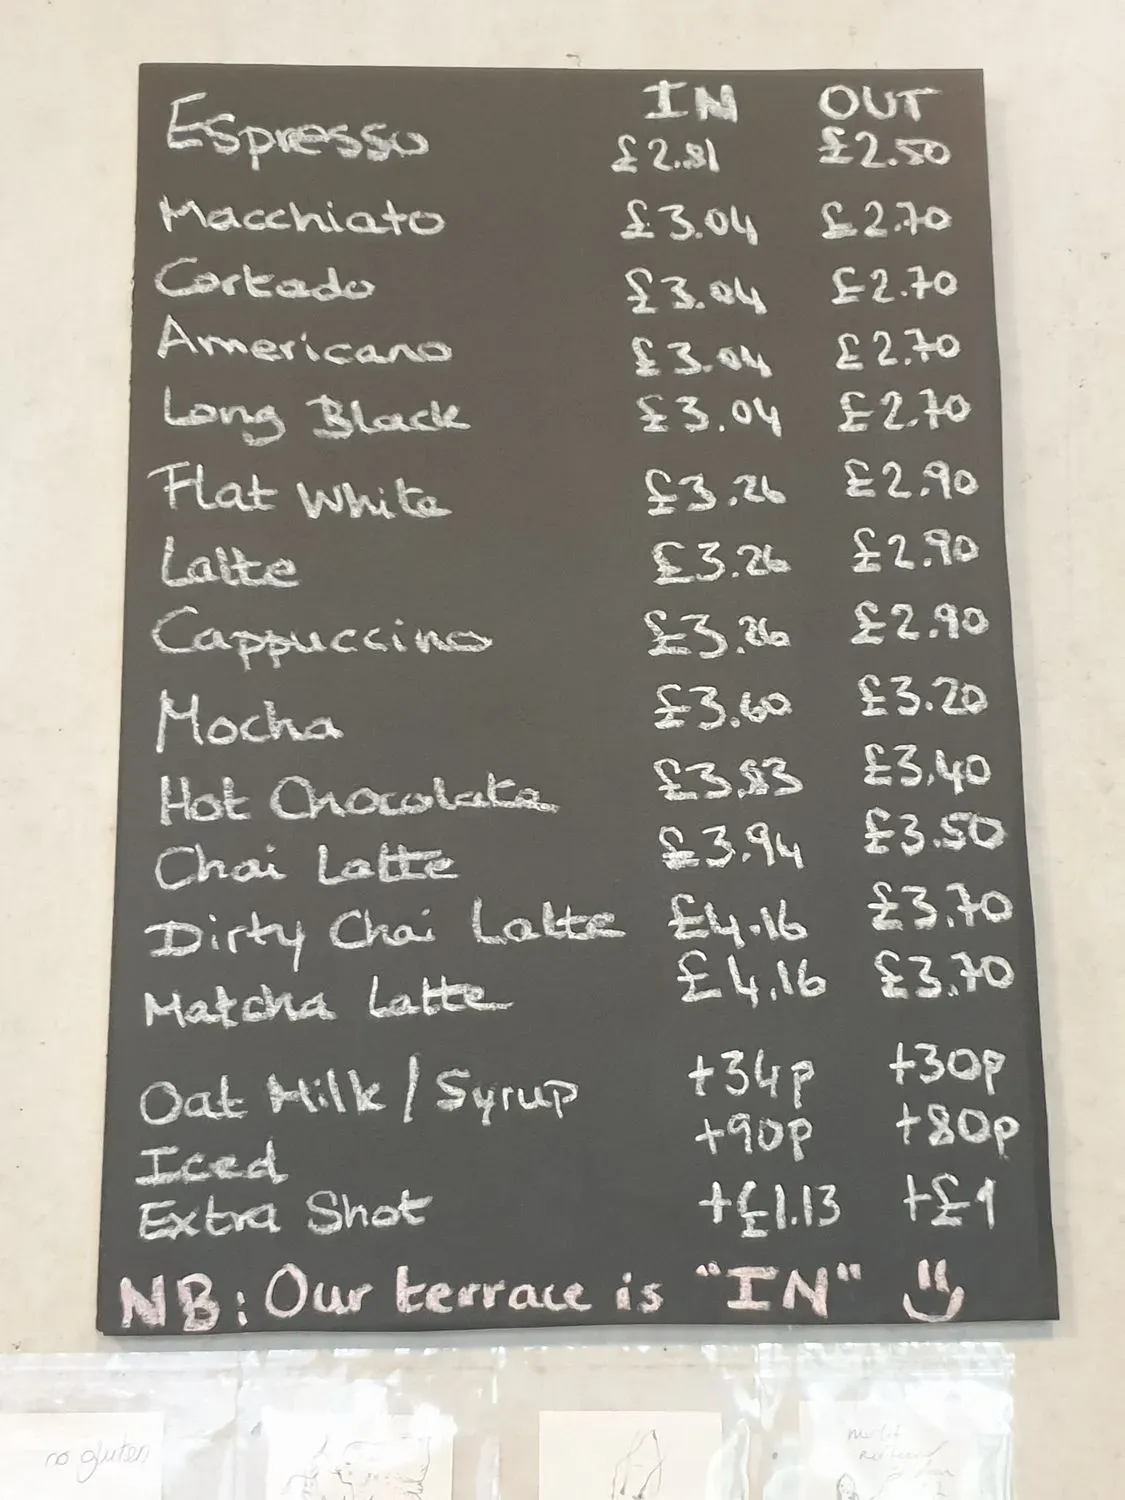 IN OUT
Espresso £2.81 £2.50
Macchiato £3.04 £2.70
Cortado £3.04 £2.70
Americano £3.04 £2.70
Long Black £3.04 £2.70
Flat White £3.26 £2.90
Latte £3.26 £2.90
Cappuccino £3.26 £2.90
Mocha £3.60 £3.20
Hot Chocolate £3.83 £3.40
Chai Latte £3.94 £3.50
Dirty Chai Latte £4.16 £3.70
Matcha Latte £4.16 £3.70
Oat Milk / Syrup +34p +30p
Iced +90p +80p
Extra Shot +£1.13 +£1
NB: Our terrace is "IN"
no gluten